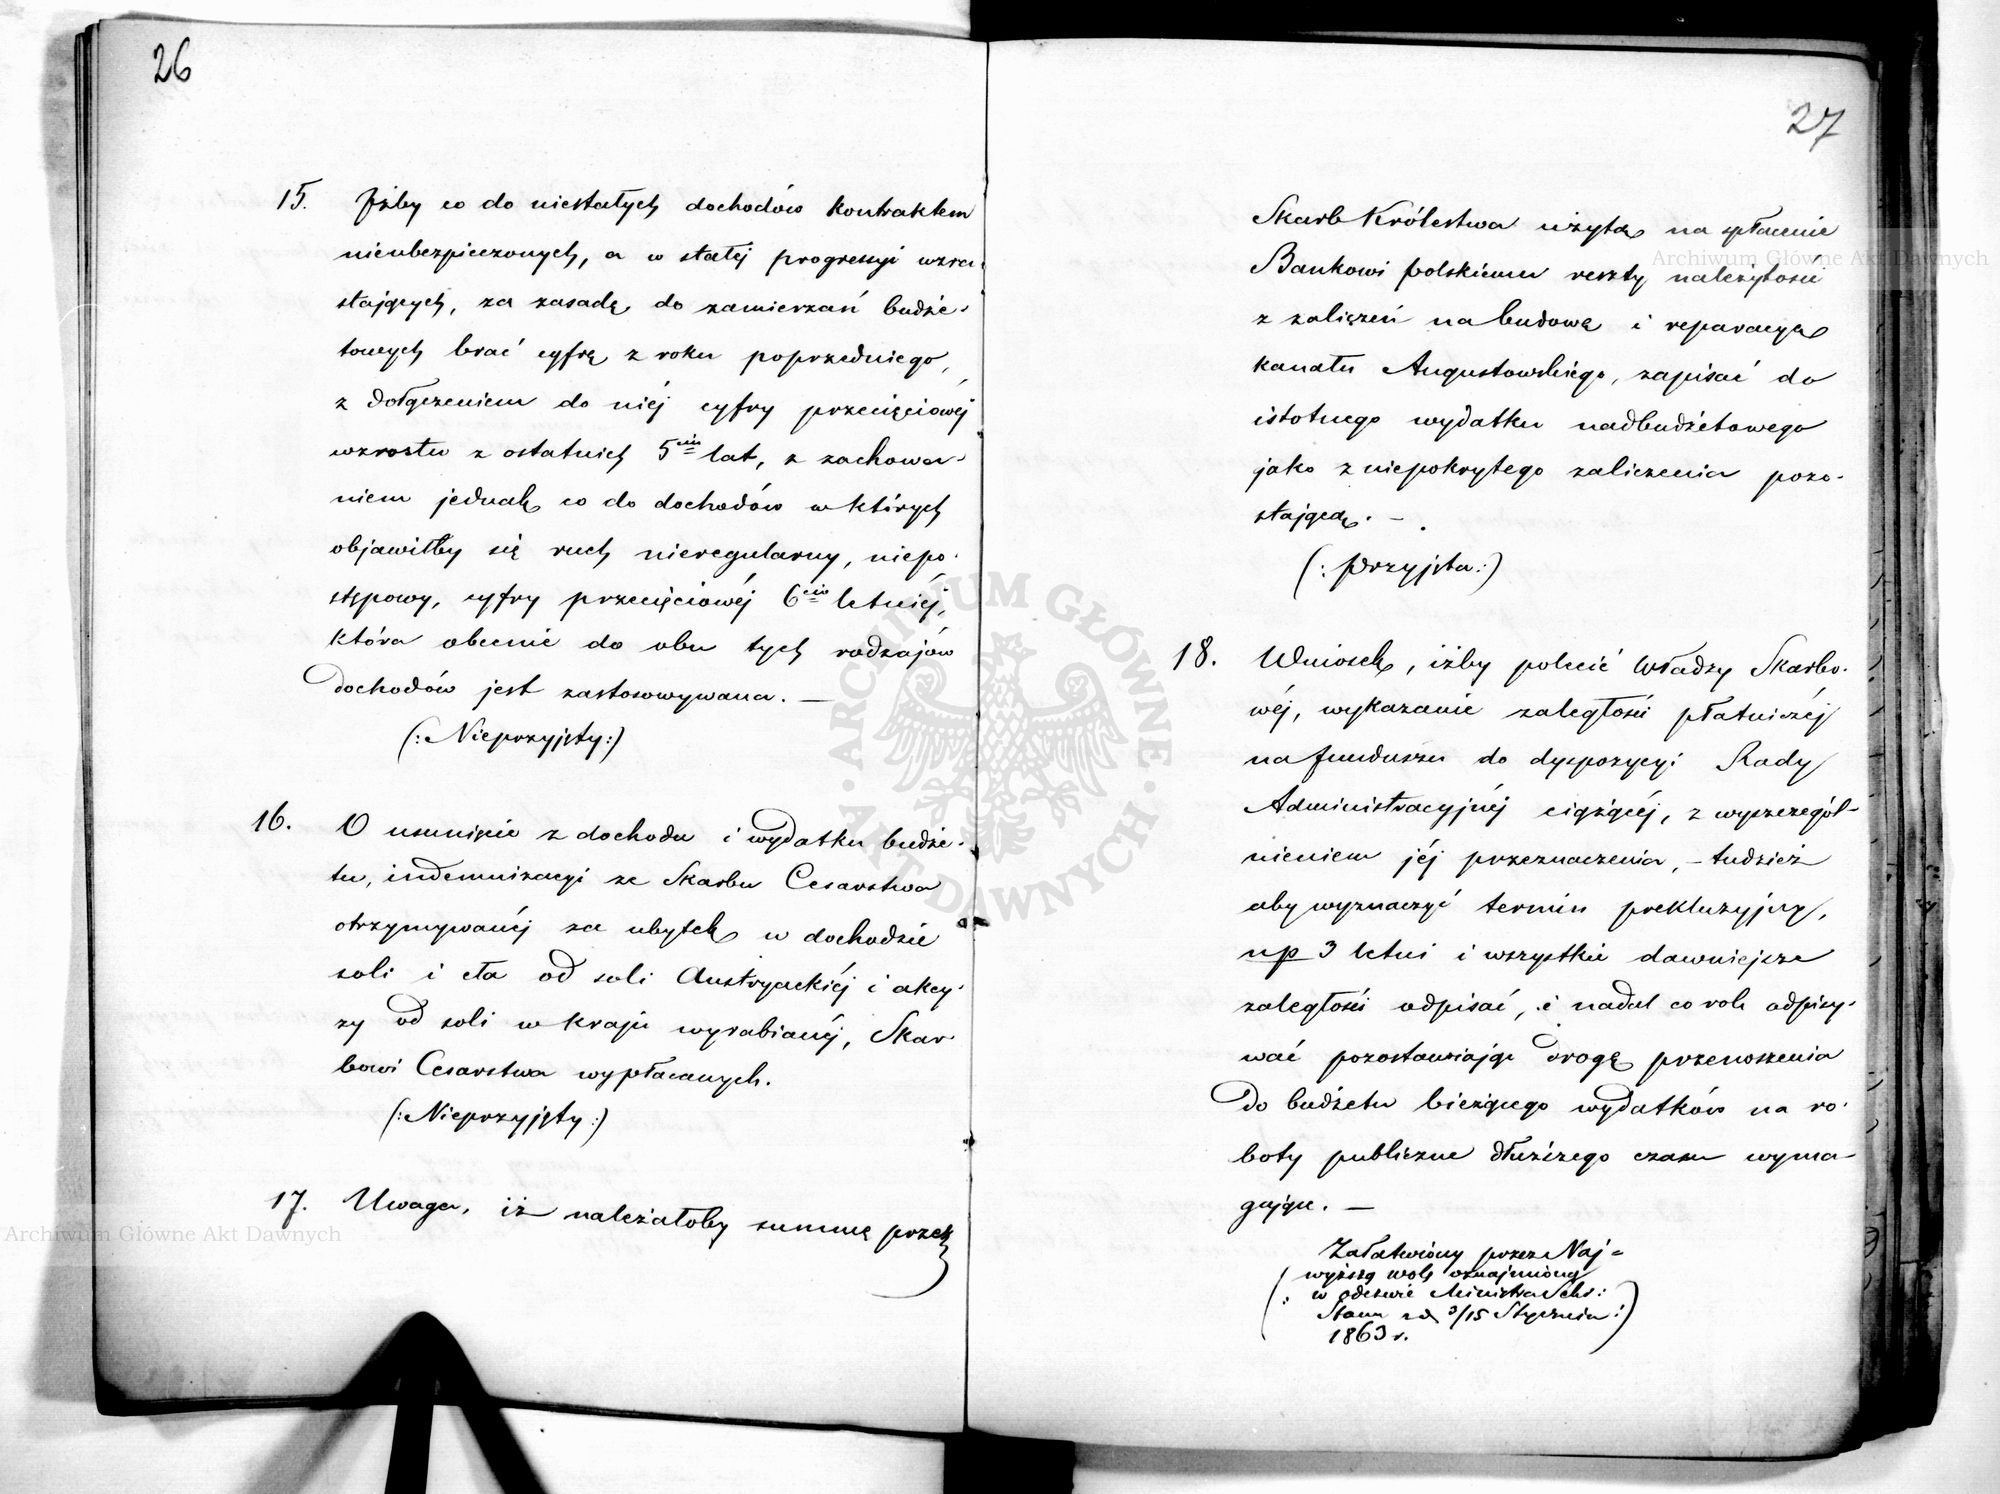 26
15. Iżby co do niestałych dochodów kontraktem
nieubezpieczonych, a w stałej progressyi wzra-
stających, za zasadę do zamierzań budże-
towych brać cyfrę z roku poprzedniego,
z dołączeniem do niéj cyfry przecięciowéj
wzrostu z ostatnich 5ciu lat, z zachowa-
niem jednak co do dochodów w których
objawiłby się ruch nieregularny, niepo-
stępowy, cyfry przecięciowéj 6cio letniéj,
która obecnie do obu tych rodzajów
dochodów jest zastosowywana. —
(: Nieprzyjęty :)
16. O usunięcie z dochodu i wydatku budże-
tu, indemnizacyi ze Skarbu Cesarstwa
otrzymywanéj za ubytek w dochodzie
soli i cła od soli Austryackiéj i akcy-
zy od soli w kraju wyrabianéj, Skar-
bowi Cesarstwa wypłacanych.
(: Nieprzyjęty :)
17. Uwaga, iż należałoby summę przez
27
Skarb Królestwa użytą na spłacenie
Bankowi polskiemu reszty należytości
z zaliczeń na budowę i reparacyę
kanału Augustowskiego, zapisać do
istotnego wydatku nadbudżetowego
jako z niepokrytego zaliczenia pozo-
stającą. —
(: Przyjęta :)
18. Wniosek, iżby polecić Władzy Skarbo-
wéj, wykazanie zaległości płatniczéj
na funduszu do dyspozycyi Rady
Administracyjnéj ciążącéj, z wyszczegól-
nieniem jéj przeznaczenia, — tudzież
aby wyznaczyć termin prekluzyjny,
np 3 letni i wszystkie dawniejsze
zaległości odpisać, i nadal co rok odpisy-
wać pozostawiając drogę przenoszenia
do budżetu bieżącego wydatków na ro-
boty publiczne dłuższego czasu wyma-
gające. —
(: Załatwiony przez Naj-
wyższą wolę oznajmioną
w odezwie Ministra Sekr:
Stanu z d. 3/15 Stycznia
1863 r. :)
ARCHIWUM GŁÓWNE AKT DAWNYCH
Archiwum Główne Akt Dawnych
Archiwum Główne Akt Dawnych